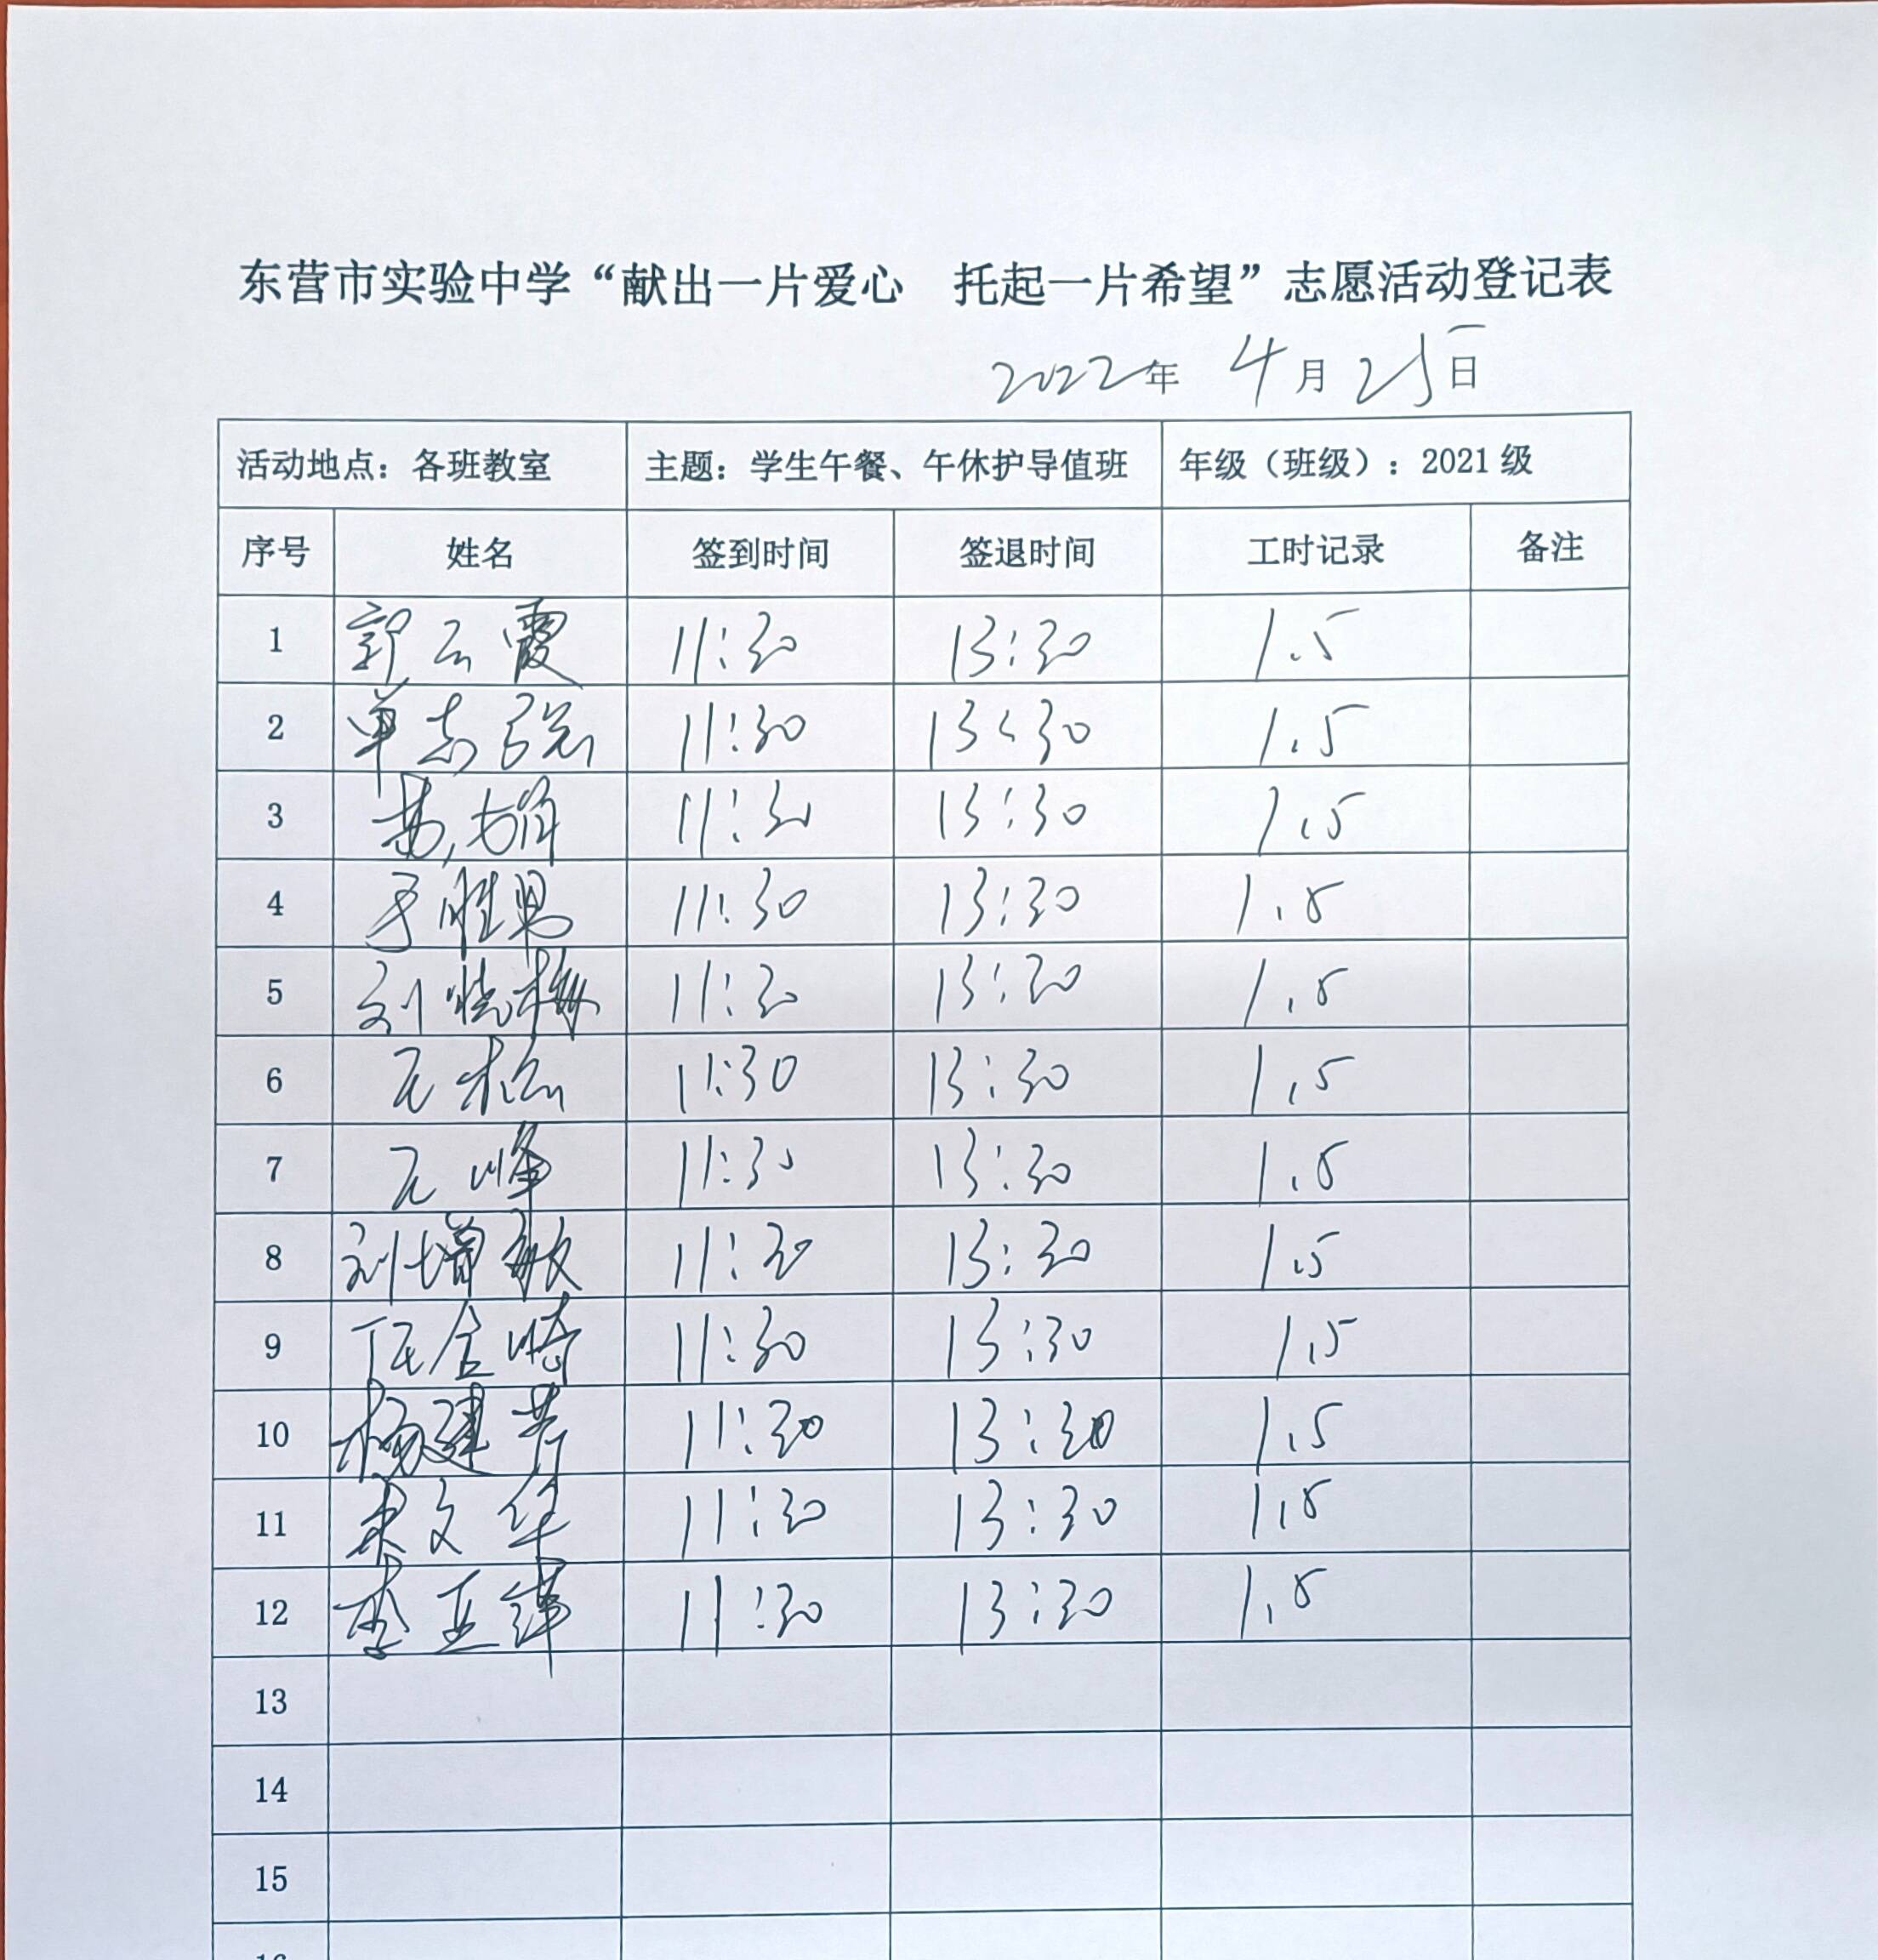 东营市实验中学“献出一片爱心 托起一片希望”志愿活动登记表
2022年 4月25日
活动地点：各班教室 主题：学生午餐、午休护导值班 年级（班级）：2021级
序号 姓名 签到时间 签退时间 工时记录 备注
1 郭云霞 11:30 13:30 1.5
2 单志强 11:30 13:30 1.5
3 11:30 13:30 1.5
4 于胜男 11:30 13:30 1.5
5 刘晓梅 11:30 13:30 1.5
6 11:30 13:30 1.5
7 11:30 13:30 1.5
8 刘增敏 11:30 13:30 1.5
9 11:30 13:30 1.5
10 杨建芳 11:30 13:30 1.5
11 宋文华 11:30 13:30 1.5
12 李亚 11:30 13:30 1.5
13
14
15